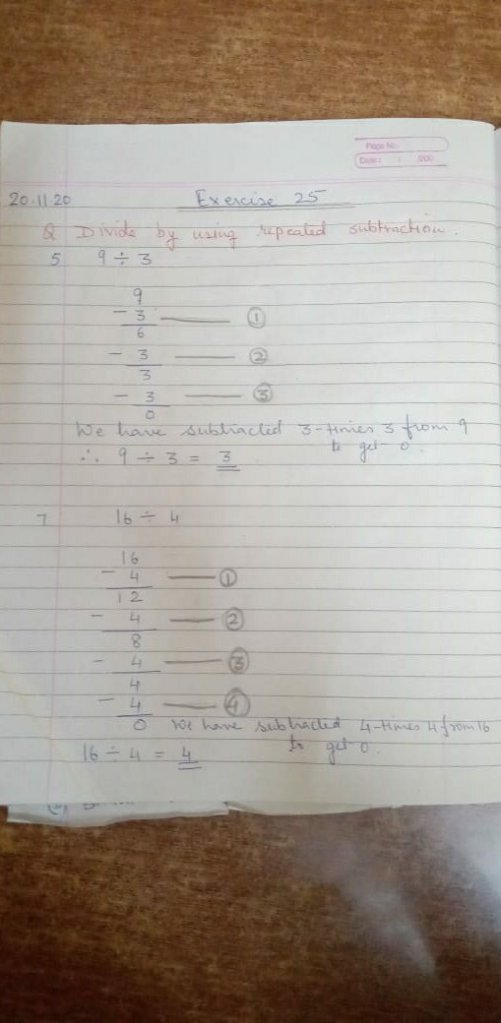 Page No.
Date: : 200
20.11.20 Exercise 25
Q Divide by using repeated subtraction.
5 9 ÷ 3
9
- 3 ①
6
- 3 ②
3
- 3 ③
0
We have subtracted 3-times 3 from 9
to get 0.
∴ 9 ÷ 3 = 3
7 16 ÷ 4
16
- 4 ①
12
- 4 ②
8
- 4 ③
4
- 4 ④
0 We have subtracted 4-times 4 from 16
to get 0.
16 ÷ 4 = 4